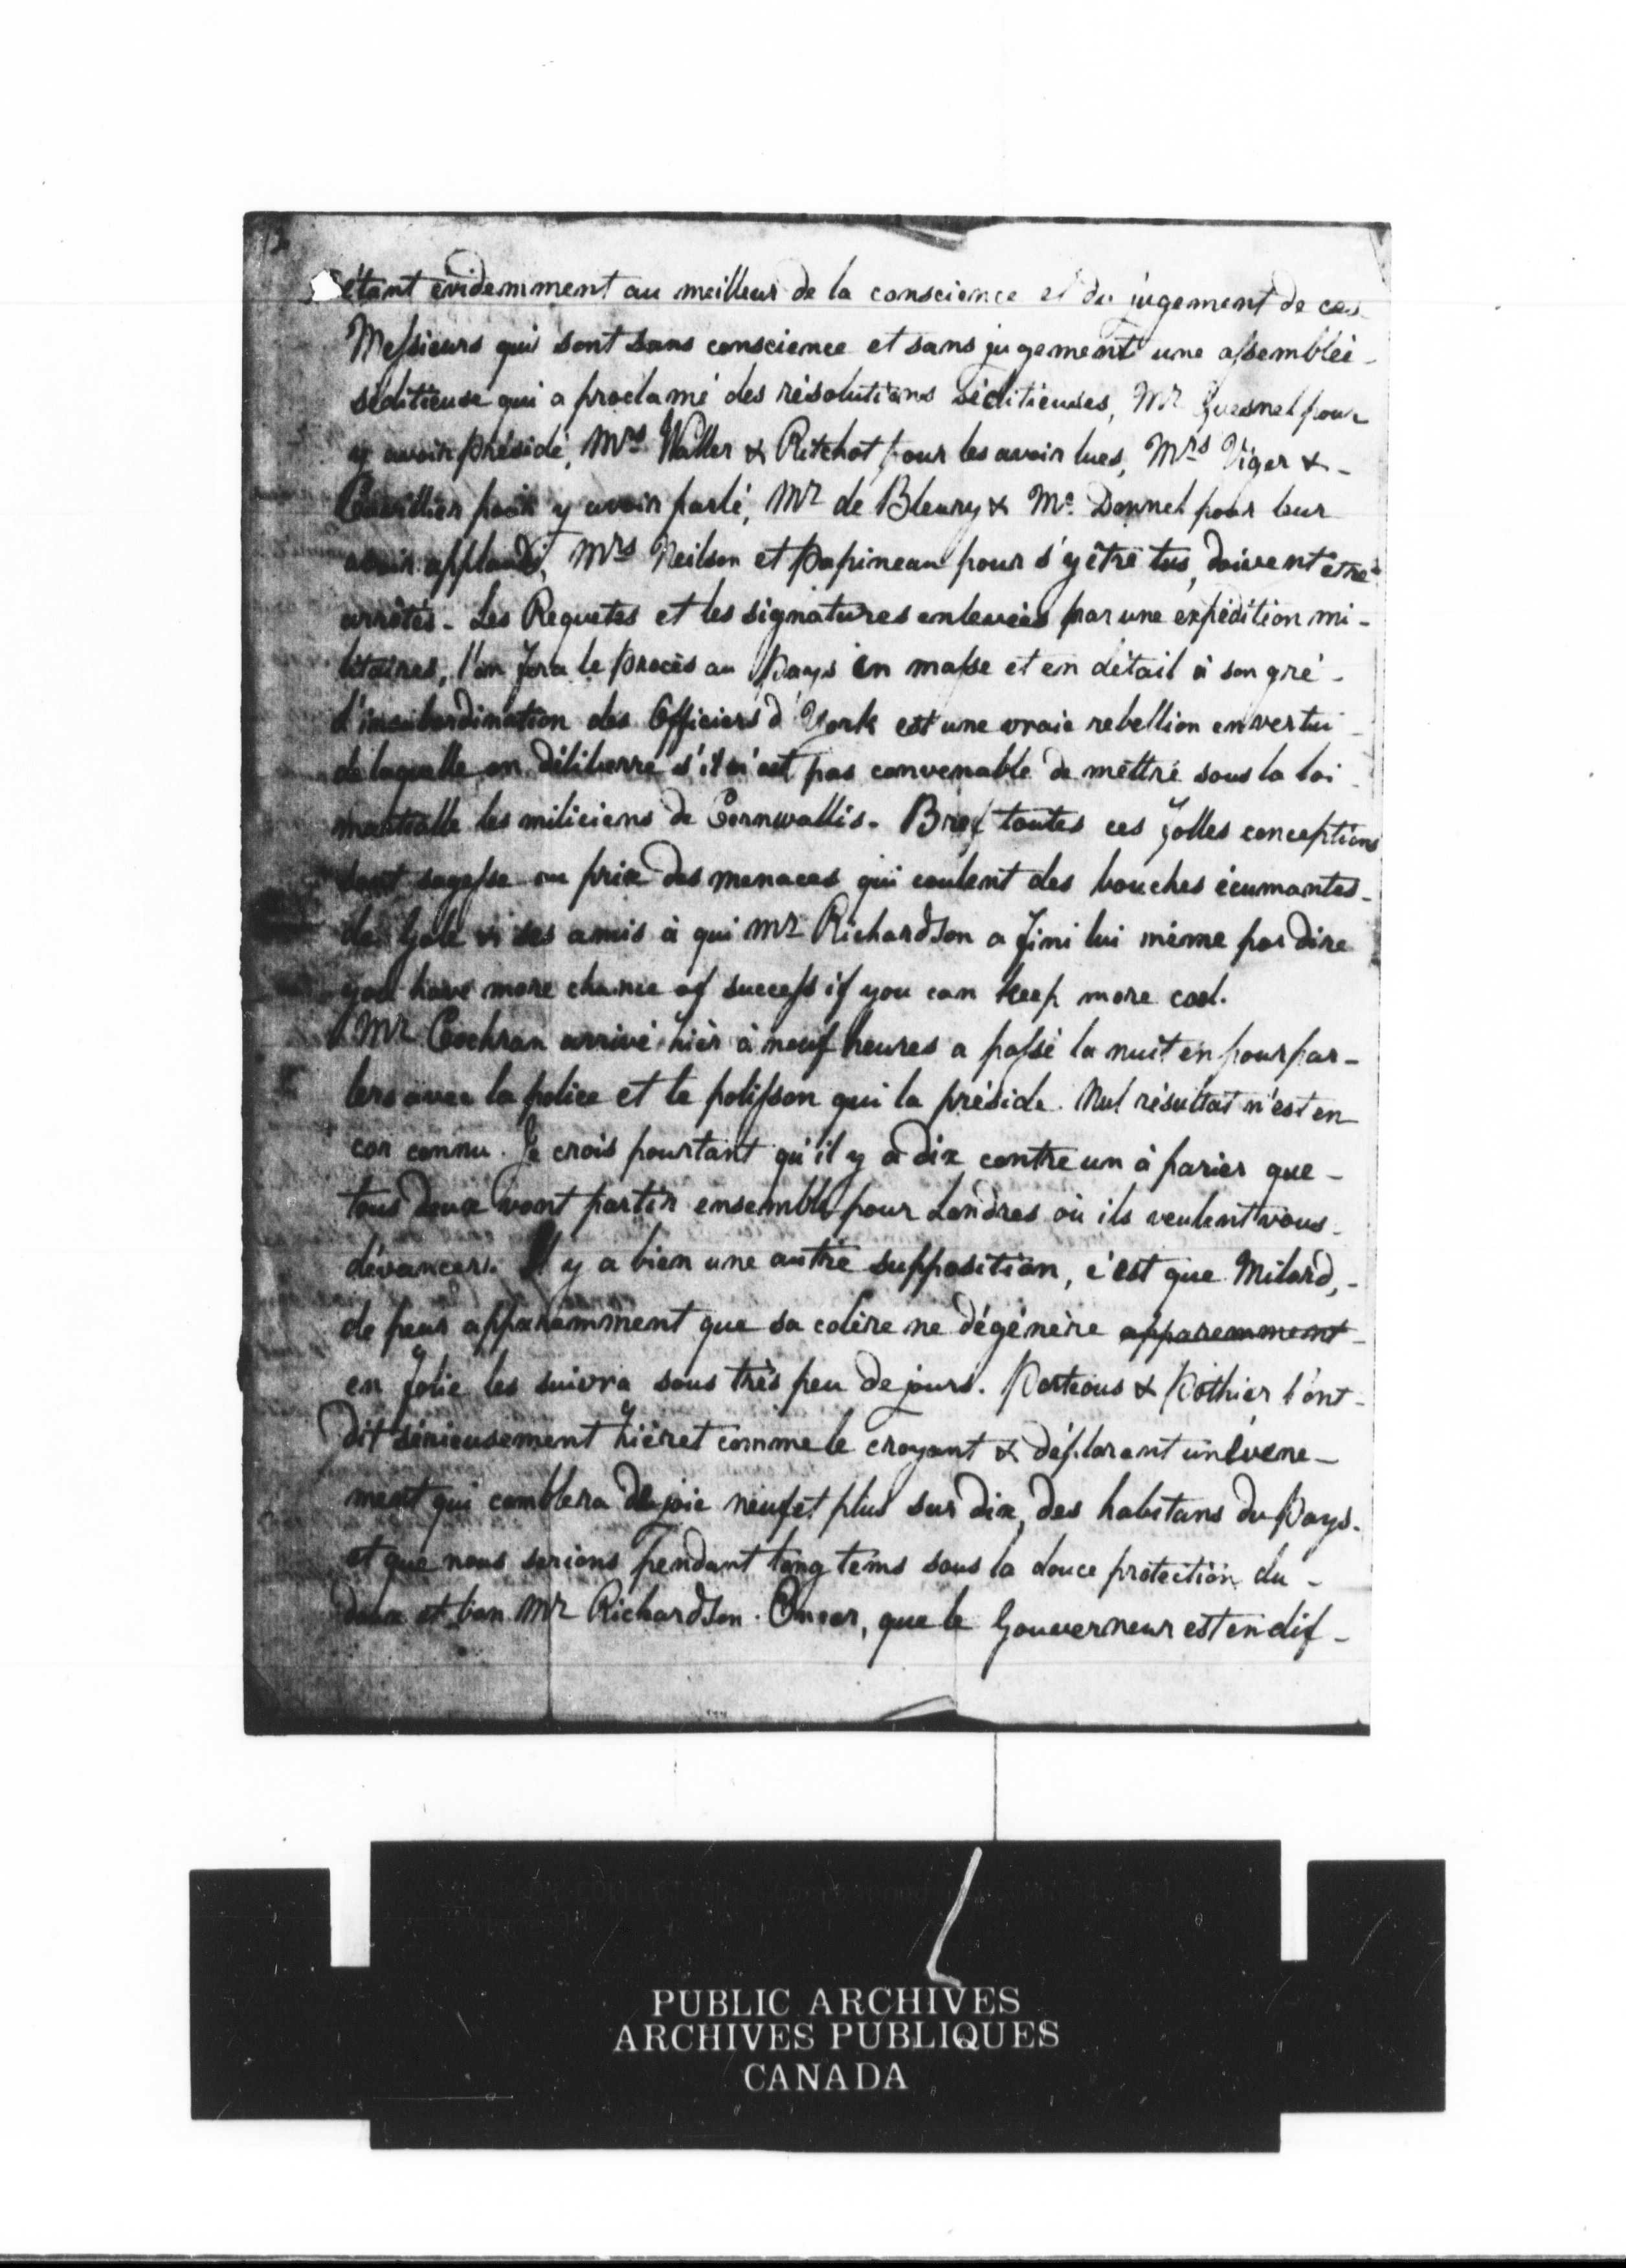 étant évidemment au meilleur de la conscience et du jugement de ces
Messieurs qui sont sans conscience et sans jugement une assemblée
séditieuse qui a proclamé des résolutions séditieuses, Mr Quesnel pour
y avoir présidé, Mrs Waller & Ritchot pour les avoir lues, Mrs Viger & -
Cuvillier pour y avoir parlé, Mr de Bleury & Mc Donnel pour leur
avoir applaudi, Mrs Neilson et Papineau pour s'y être tus, doivent être
arrêtés - Les Requetes et les signatures enlevées par une expédition mi-
litaires, l'on fera le procès au Pays en masse et en détail à son gré -
L'insubordination des Officiers d'York est une vraie rebellion en vertu
de laquelle on délibere s'il n'est pas convenable de mettre sous la loi
martialle les miliciens de Cornwallis. Bref toutes ces folles conceptions
sont sagesse au prix des menaces qui coulent des bouches écumantes -
de Gale & ses amis à qui Mr Richardson a fini lui même par dire
you have more chance of success if you can keep more cool.
Mr Cochran arrivé hièr à neuf heures a passé la nuit en pourpar-
lers avec la police et le polisson qui la préside. Nul résultat n'est en
cor connu. Je crois pourtant qu'il y a dix contre un à parier que -
tous deux vont partir ensemble pour Londres où ils veulent vous
dévancer. Il y a bien une autre supposition, c'est que Milord, -
de peur apparemment que sa colère ne dégénère apparemment
en folie les suivra sous très peu de jours. Porteous & Pothier l'ont -
dit sérieusement hièr et comme le croyant & déplorant un évene-
ment qui comblera de joie neuf et plus sur dix, des habitans du Pays.
et que nous serions pendant long tems sous la douce protection du -
doux et bon Mr Richardson. Encor, que le Gouverneur est en dif-
PUBLIC ARCHIVES
ARCHIVES PUBLIQUES
CANADA